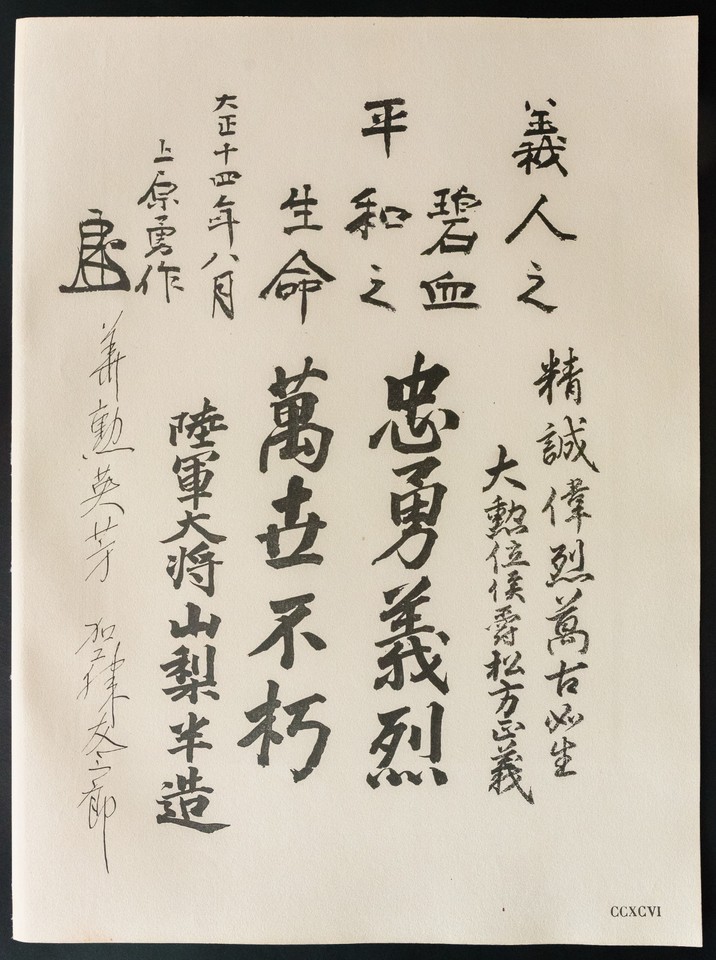 義人之
碧血
平和之
生命
大正十四年八月
上原勇作
精誠偉烈萬古如生
大勲位侯爵松方正義
忠勇義烈
萬世不朽
陸軍大将山梨半造
勲英芳 加藤友三郎
CCXCVI